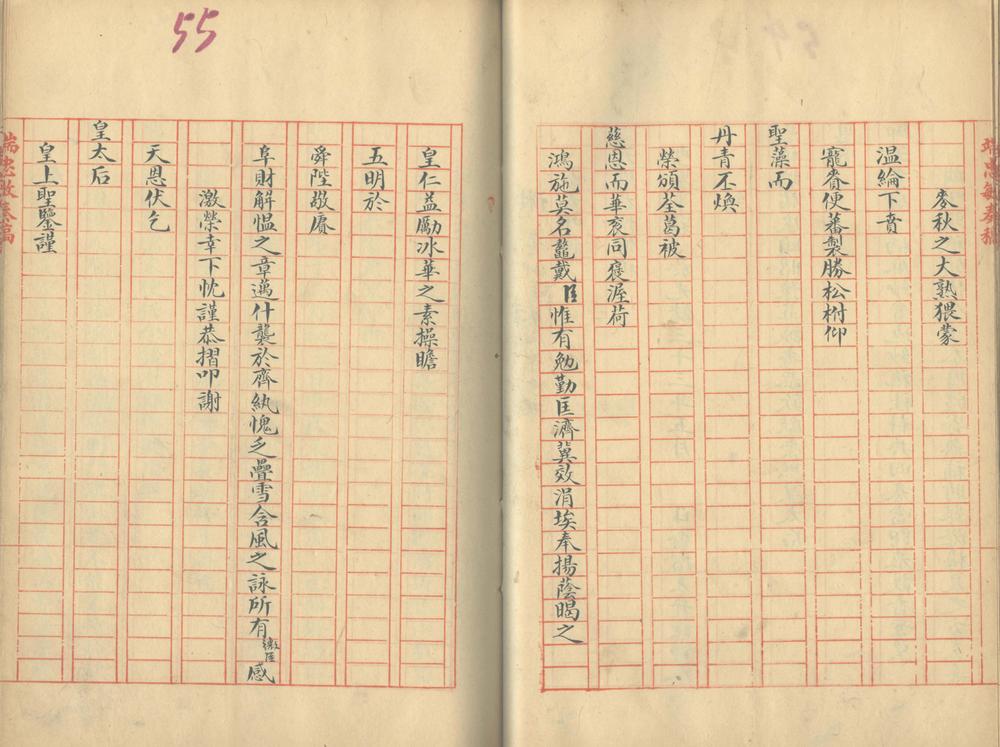 麥秋之大熟猥蒙
温綸下賁
寵眷便蕃製勝松柎仰
聖藻而
丹青丕煥
榮頒荃葛被
慈恩而華衮同褒渥荷
鴻施莫名鼇戴臣惟有勉勤匡濟冀效涓埃奉揚蔭暍之
55
皇仁益勵冰華之素操瞻
五明於
舜陛敬賡
阜財解愠之章邁什襲於齊紈愧乏疊雪含風之詠所有微臣感
激榮幸下忱謹恭摺叩謝
天恩伏乞
皇太后
皇上聖鑒謹
端忠敏奏稿